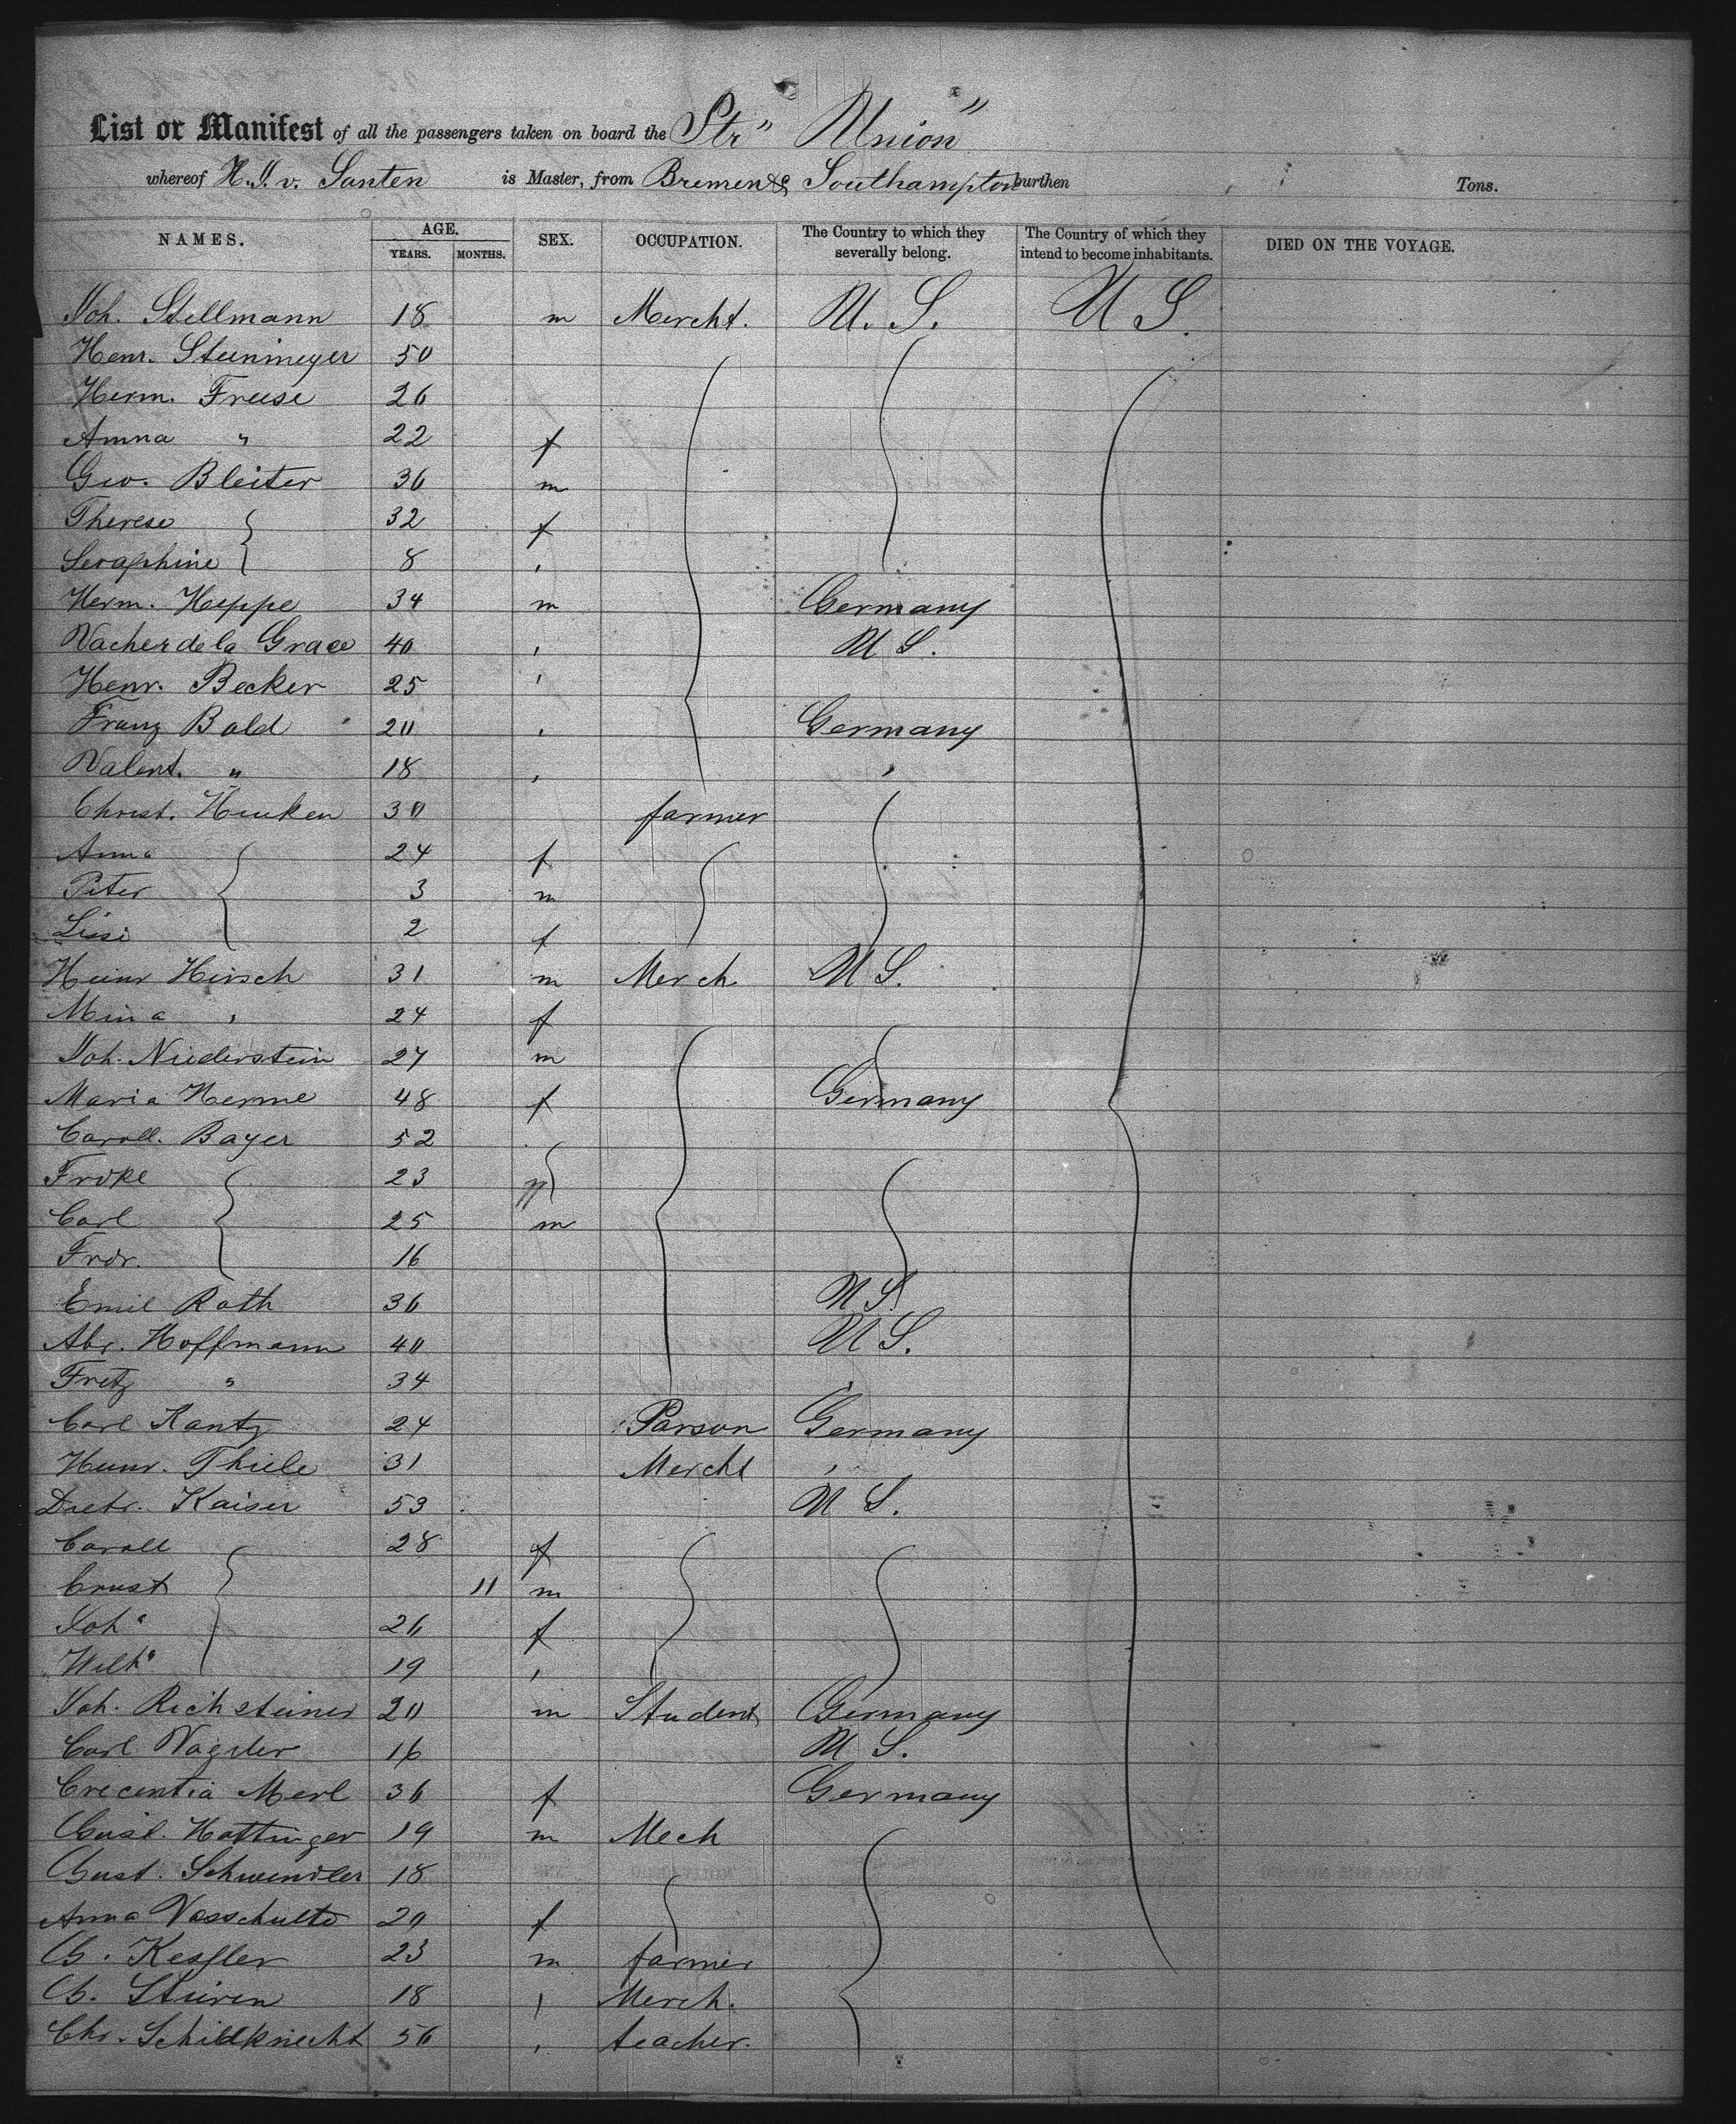 List or Manifest of all the passengers taken on board the Str "Union"
whereof H. J. v. Santen is Master, from Bremen & Southampton burthen Tons.
NAMES. AGE. SEX. OCCUPATION. The Country to which they severally belong. The Country of which they intend to become inhabitants. DIED ON THE VOYAGE.
YEARS. MONTHS.
Joh. Stellmann 18 m Mercht. U. S. U S.
Henr. Steinmeyer 50
Herm. Freese 26
Anna " 22 f
Geo. Bleiter 36 m
Therese 32 f
Seraphine 8 "
Herm. Heppe 34 m Germany
Vacher de la Grace 40 " U S.
Henr. Becker 25 "
Franz Bald 20 " Germany
Valent. " 18 " "
Christ. Heuken 30 farmer
Anna 24 f
Peter 3 m
Lissi 2 f
Heinr Hirsch 31 m Merch U S.
Mina " 24 f
Joh. Niederstein 27 m
Maria Herme 48 f Germany
Caroll. Bayer 52
Frdke 23
Carl 25 m
Frdr. 16
Emil Roth 36 U S
Abr. Hoffmann 40 U S.
Fritz " 34 "
Carl Kantz 24 Parson Germany
Heinr. Thiele 31 Mercht "
Dietr. Kaiser 53 U S.
Caroll 28 f
Ernst 11 m
Joh" 26 f
Wilh" 19 "
Joh. Richsteiner 20 m Student Germany
Carl Vagder 16 U S.
Crecentia Merl 36 f Germany
Gust. Hottinger 19 m Mech
Gust. Schwendler 18
Anna Vosschulte 29 f
G. Kessler 23 m farmer
G. Stüren 18 " Merch.
Chr. Schildknecht 56 " teacher.